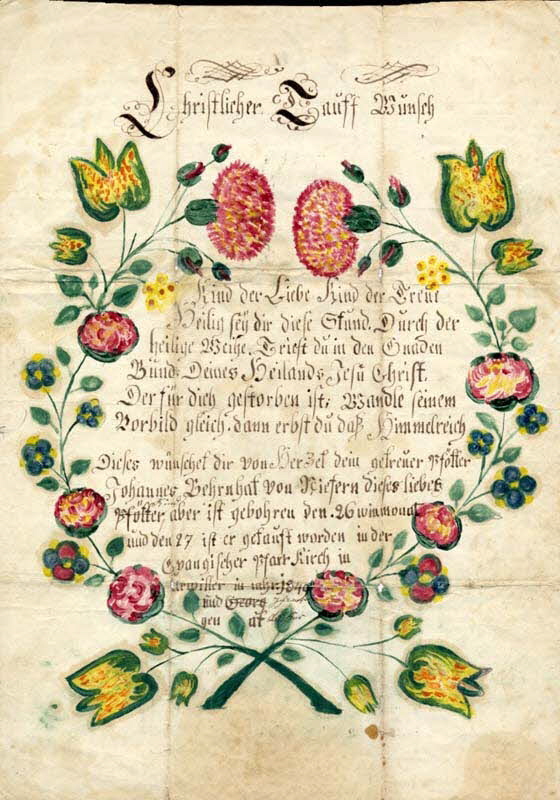 Christlicher Tauff Wunsch
Kind der Liebe Kind der Treue
Heilig sey dir diese Stund. Durch der
heilige Weihe. Triest du in den Gnaden
Bund. Deines Heilands Jesu Christ.
Der für dich gestorben ist; Wandle seinem
Vorbild gleich. dann erbst du daß Himmelreich
Dieses wünschet dir von Herzet dein getreuer Pfötter
Johannes Behrnhat von Niefern dieses liebes
Pfötter aber ist gebohren den 26 winmonat
und den 27 ist er getauft worden in der
Evangischer Pfarr Kirch in
in iahr 184
und Georg
gen